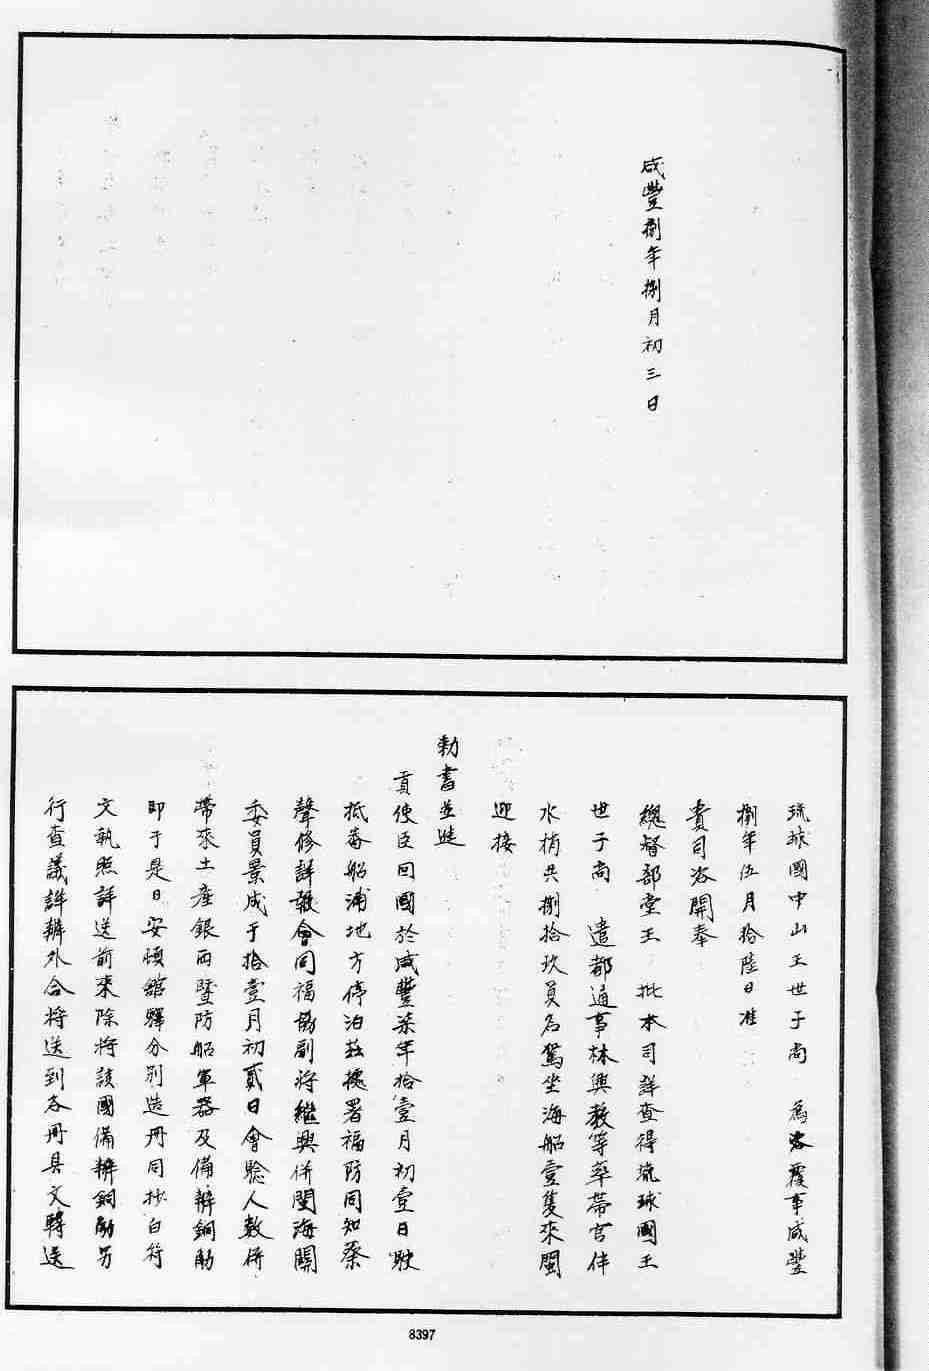 咸豐捌年捌月初三日
琉球國中山王世子尚 為咨覆事咸豐
捌年伍月拾陸日准
貴司咨開奉
總督部堂王 批本司詳查得琉球國王
世子尚 遣都通事林興教等率帶官伴
水梢共捌拾玖員名駕坐海船壹隻來閩
迎接
勅書並迯
貢使臣回國於咸豐柒年拾壹月初壹日駛
抵亭船浦地方停泊茲據署福防同知蔡
聲修詳報會同福協副將繼興併閩海關
委員景成于拾壹月初貳日會騐人數併
帶來土產銀両暨防船軍器及備辦銅觔
即于是日安頓舘驛分別造冊同抄白符
文執照詳送前來除將該國備辦銅觔另
行查議詳辦外合將送到各冊具文轉送
8397